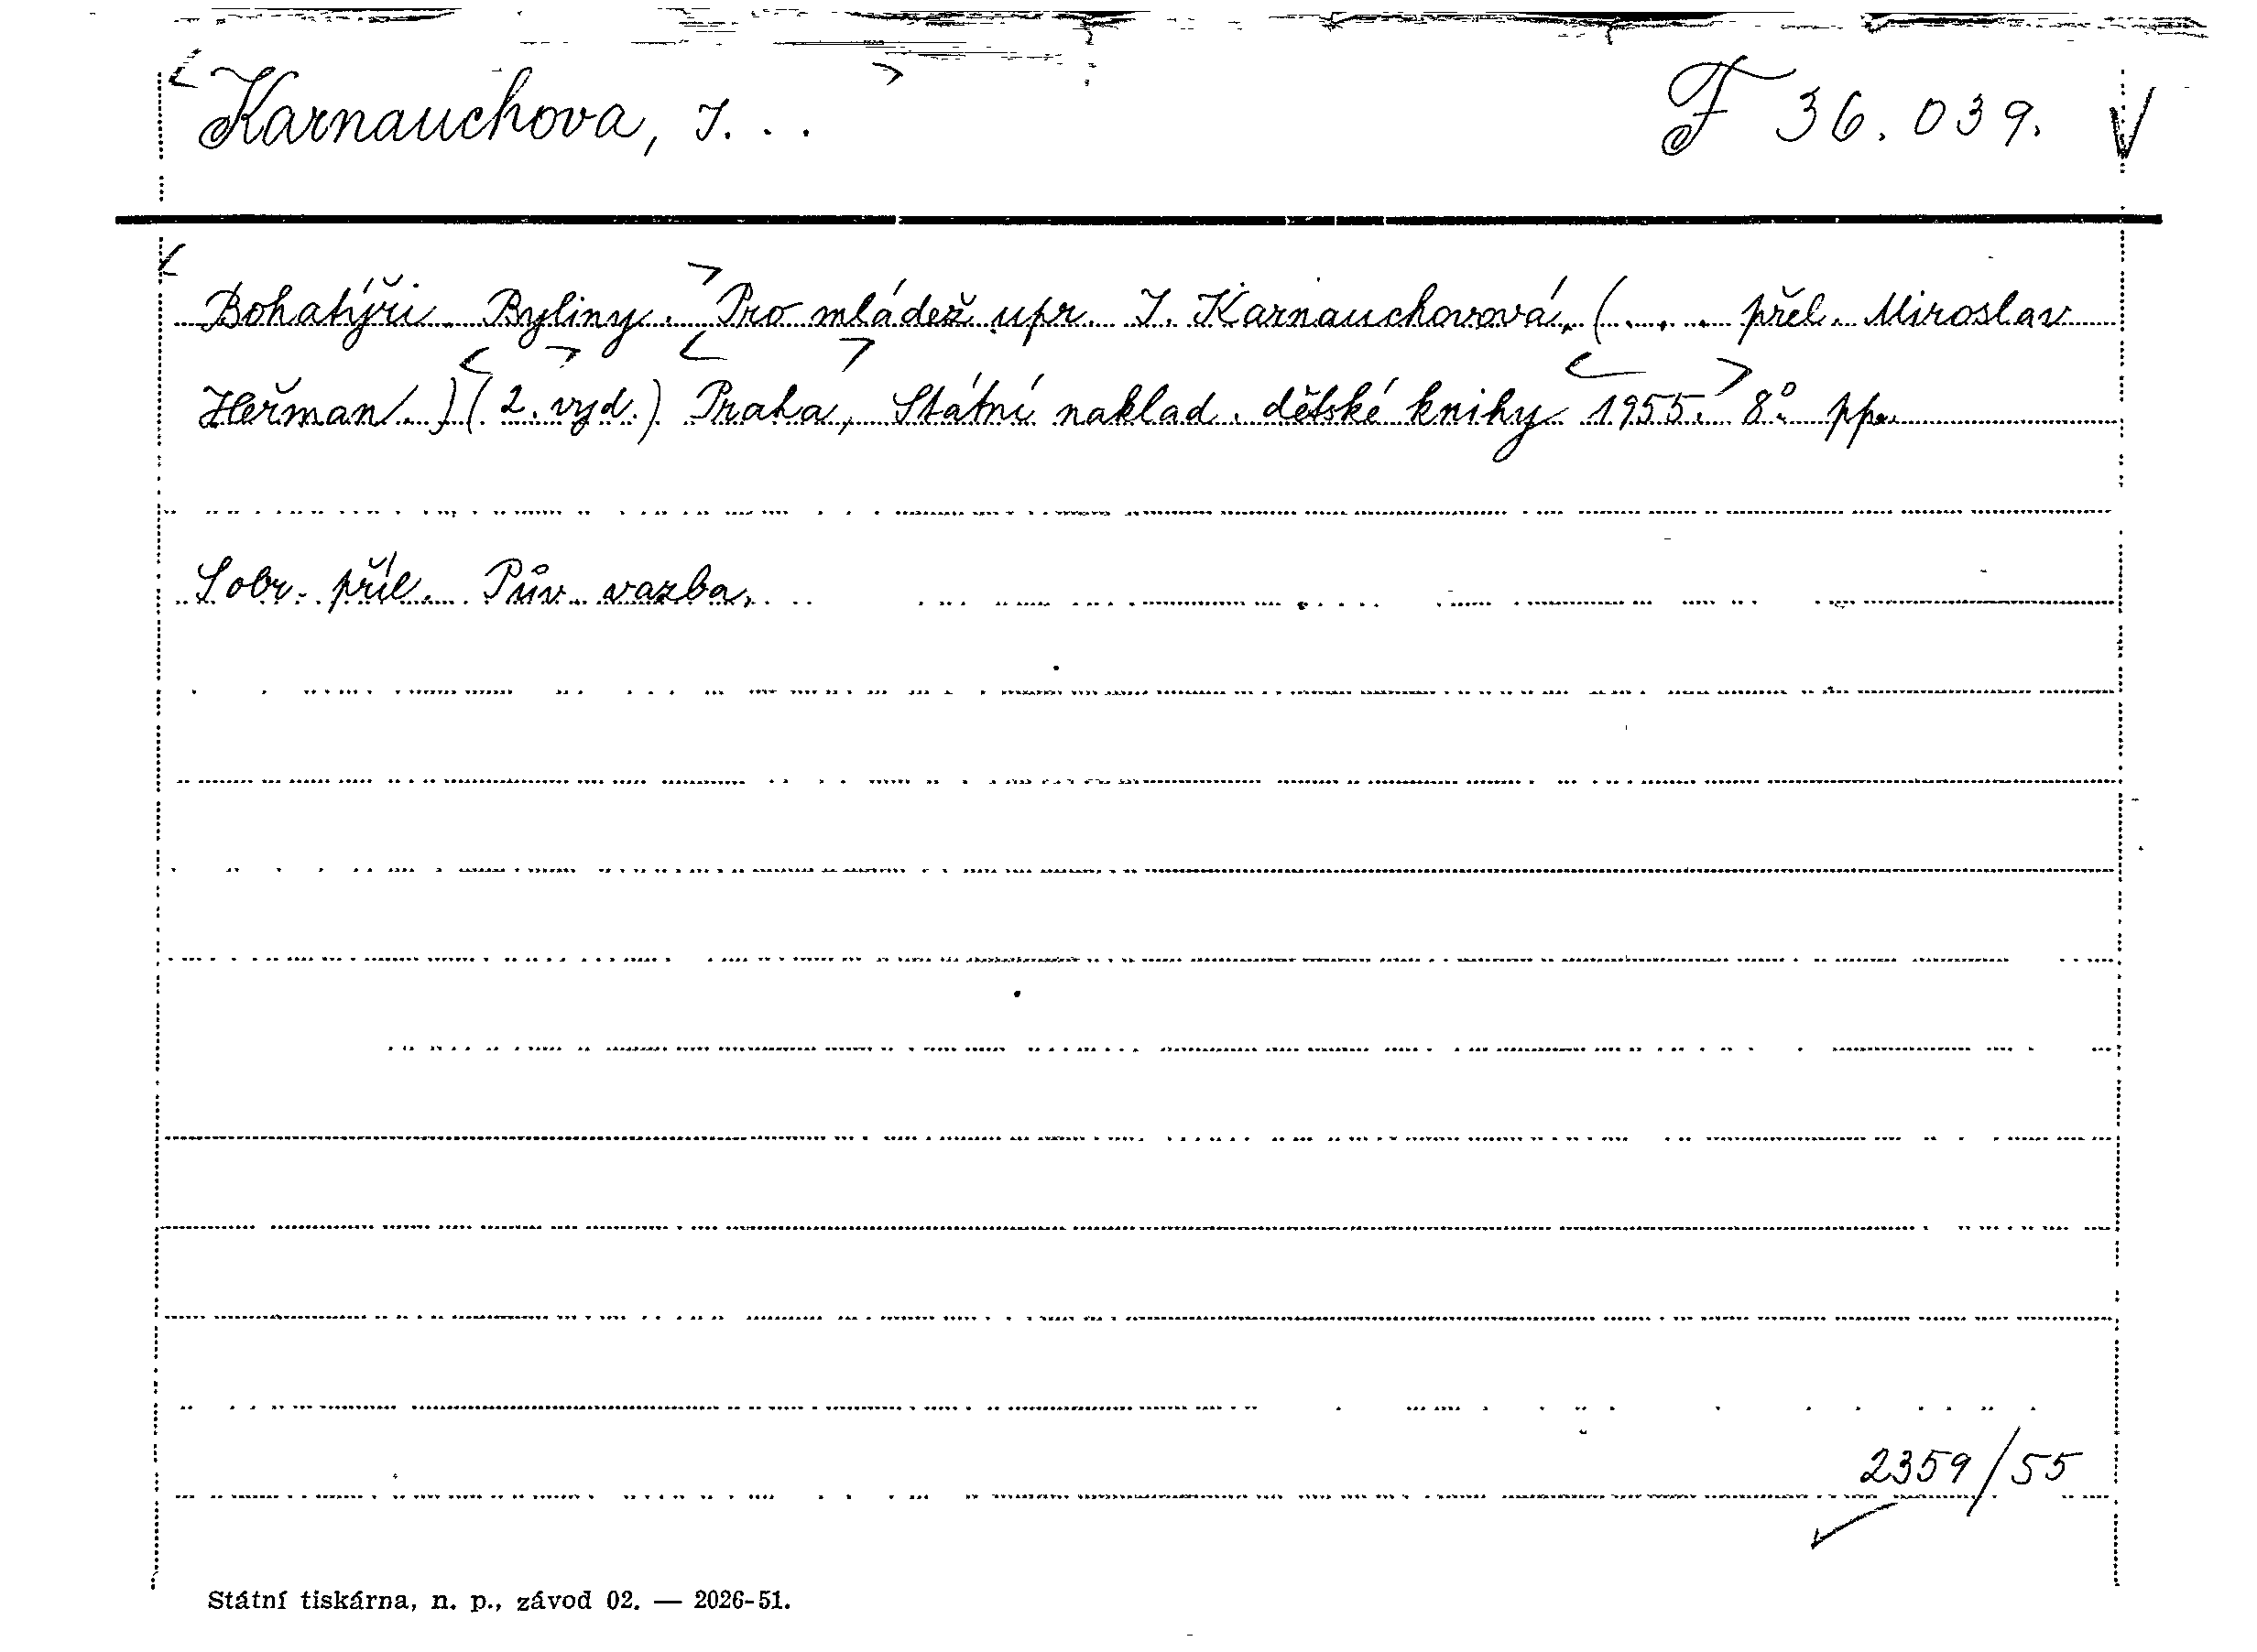 Karnauchova, I. . .
F 36.039.
Bohatýři. Byliny. Pro mládež upr. I. Karnauchovová, (. . . . přel. Miroslav
Heřman.) (2. vyd.) Praha, Státní naklad. dětské knihy 1955. 8° pp.
S obr. příl. Pův. vazba.
2359/55
Státní tiskárna, n. p., závod 02. — 2026-51.